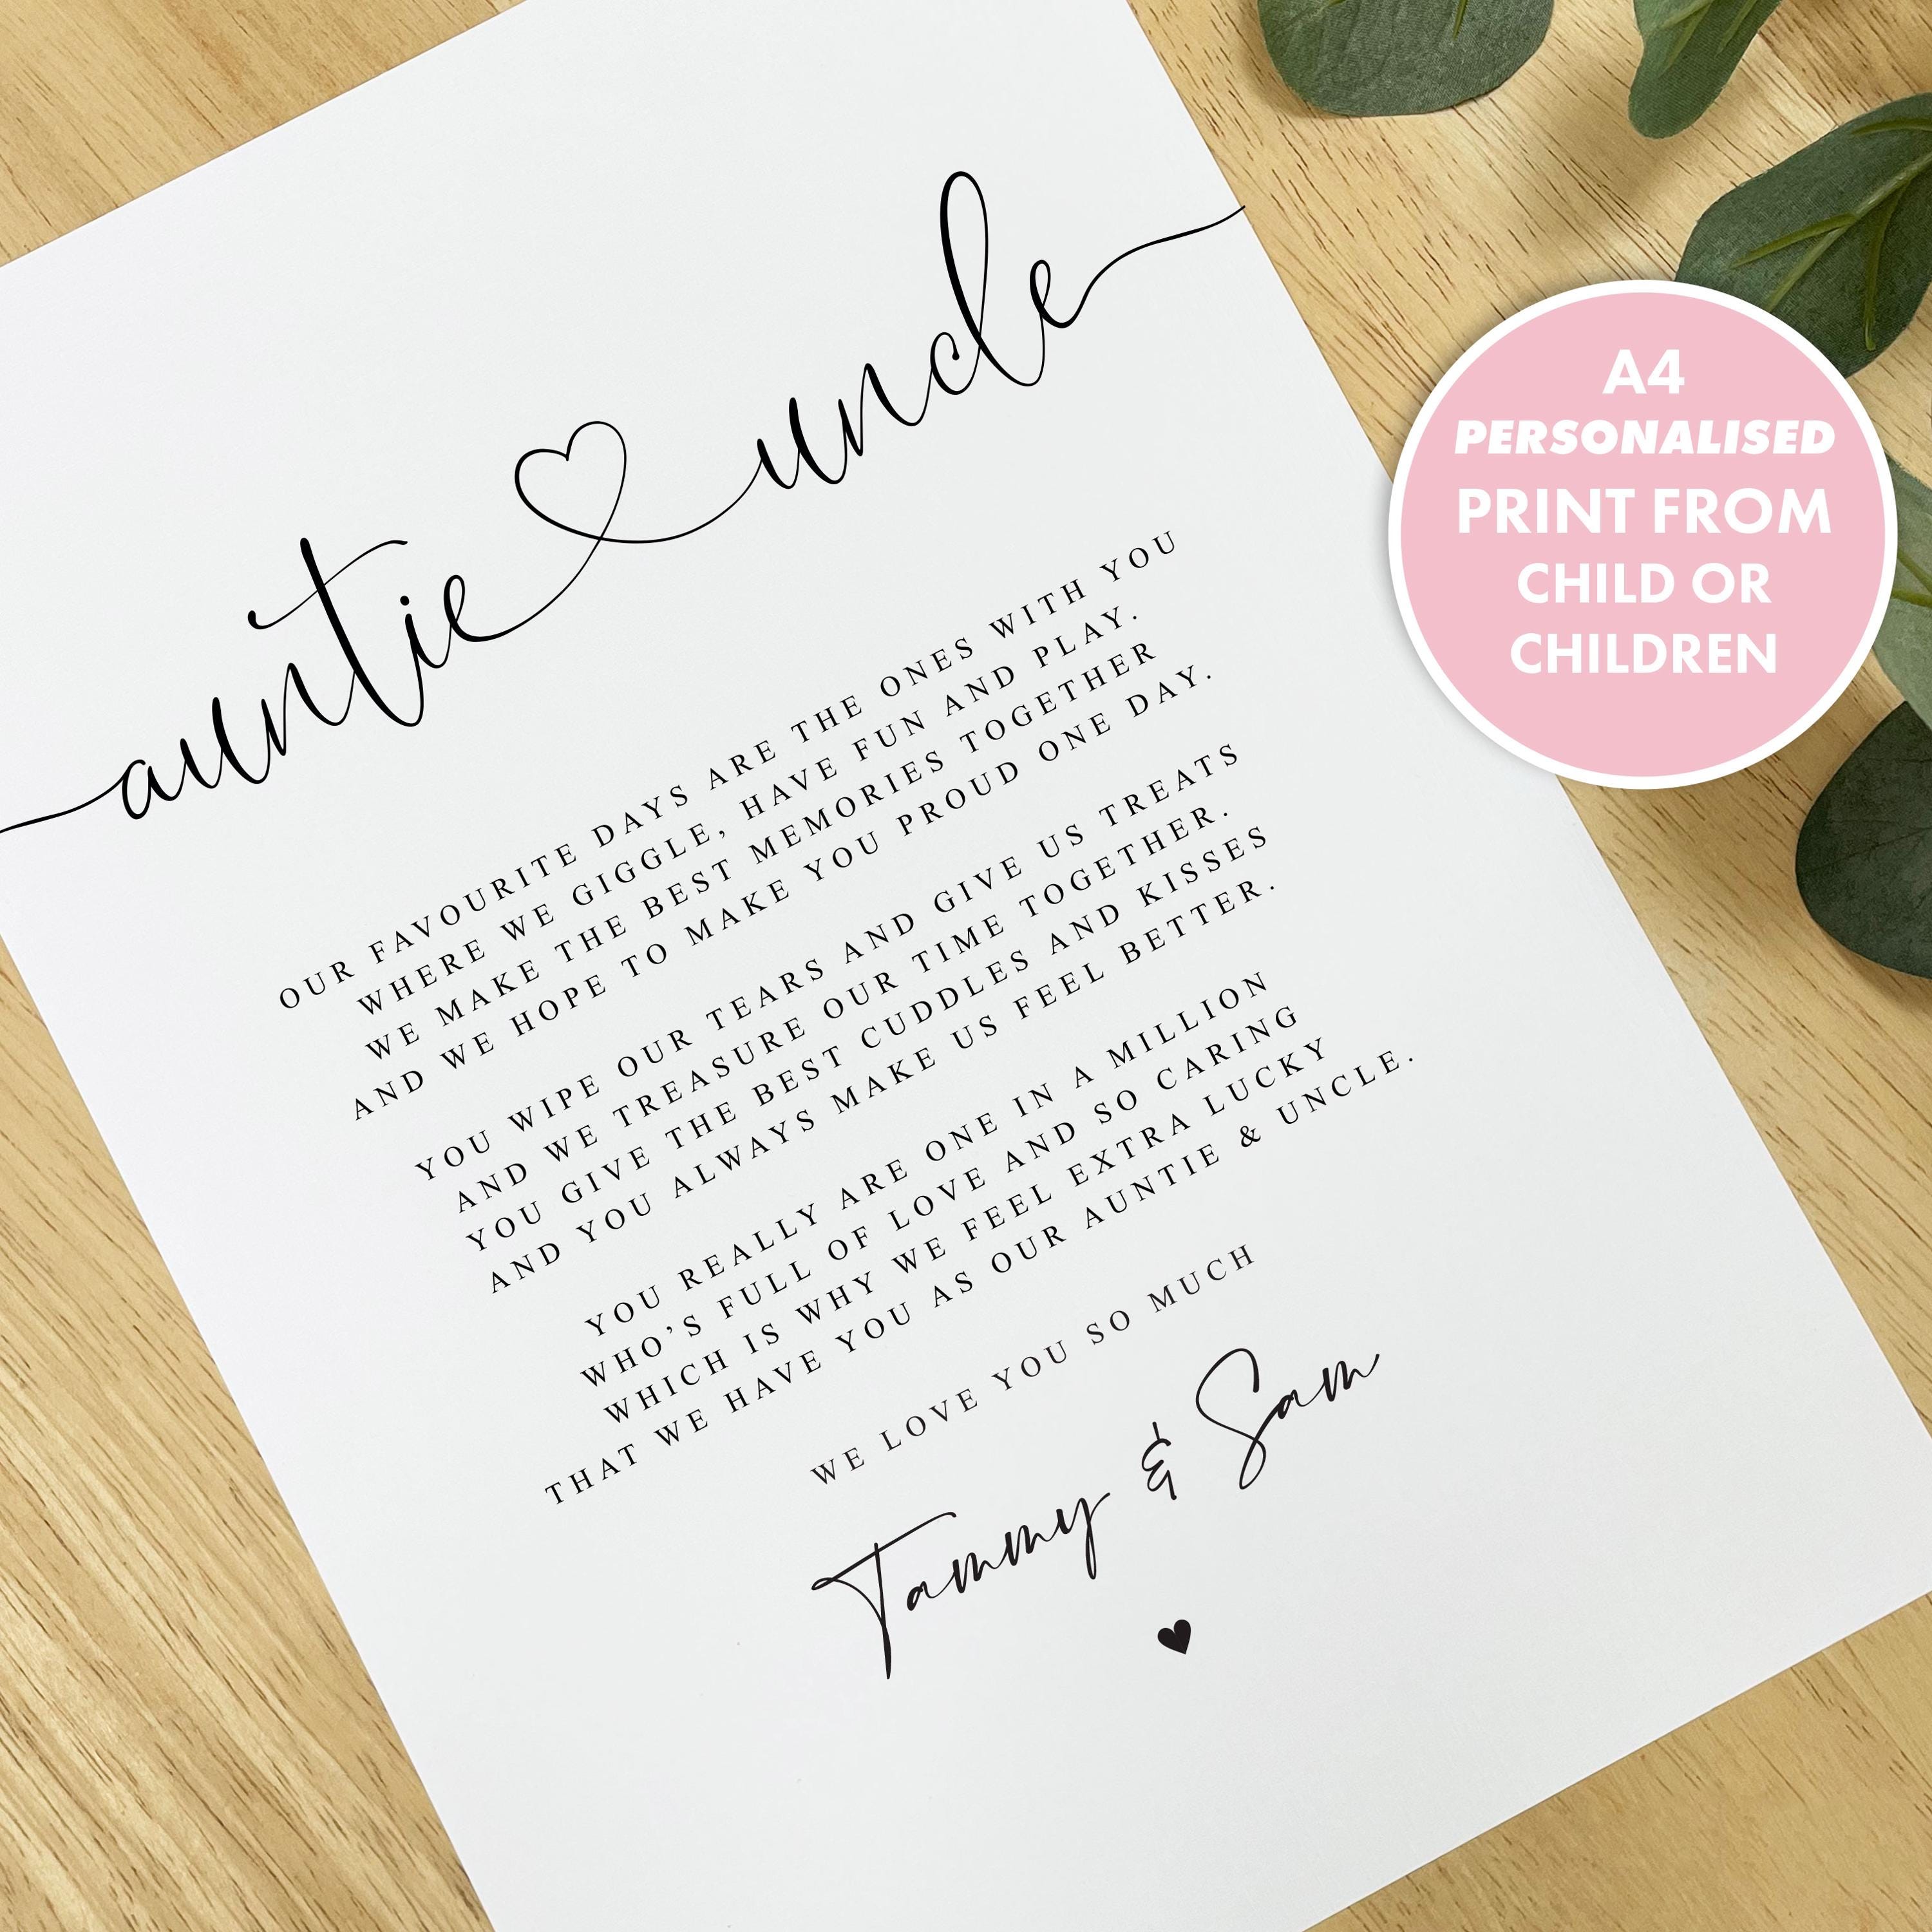 auntie uncle
OUR FAVOURITE DAYS ARE THE ONES WITH YOU
WHERE WE GIGGLE, HAVE FUN AND PLAY.
WE MAKE THE BEST MEMORIES TOGETHER
AND WE HOPE TO MAKE YOU PROUD ONE DAY.
YOU WIPE OUR TEARS AND GIVE US TREATS
AND WE TREASURE OUR TIME TOGETHER.
YOU GIVE THE BEST CUDDLES AND KISSES
AND YOU ALWAYS MAKE US FEEL BETTER.
YOU REALLY ARE ONE IN A MILLION
WHO'S FULL OF LOVE AND SO CARING
WHICH IS WHY WE FEEL EXTRA LUCKY
THAT WE HAVE YOU AS OUR AUNTIE & UNCLE.
WE LOVE YOU SO MUCH
Tammy & Sam
A4
PERSONALISED
PRINT FROM
CHILD OR
CHILDREN